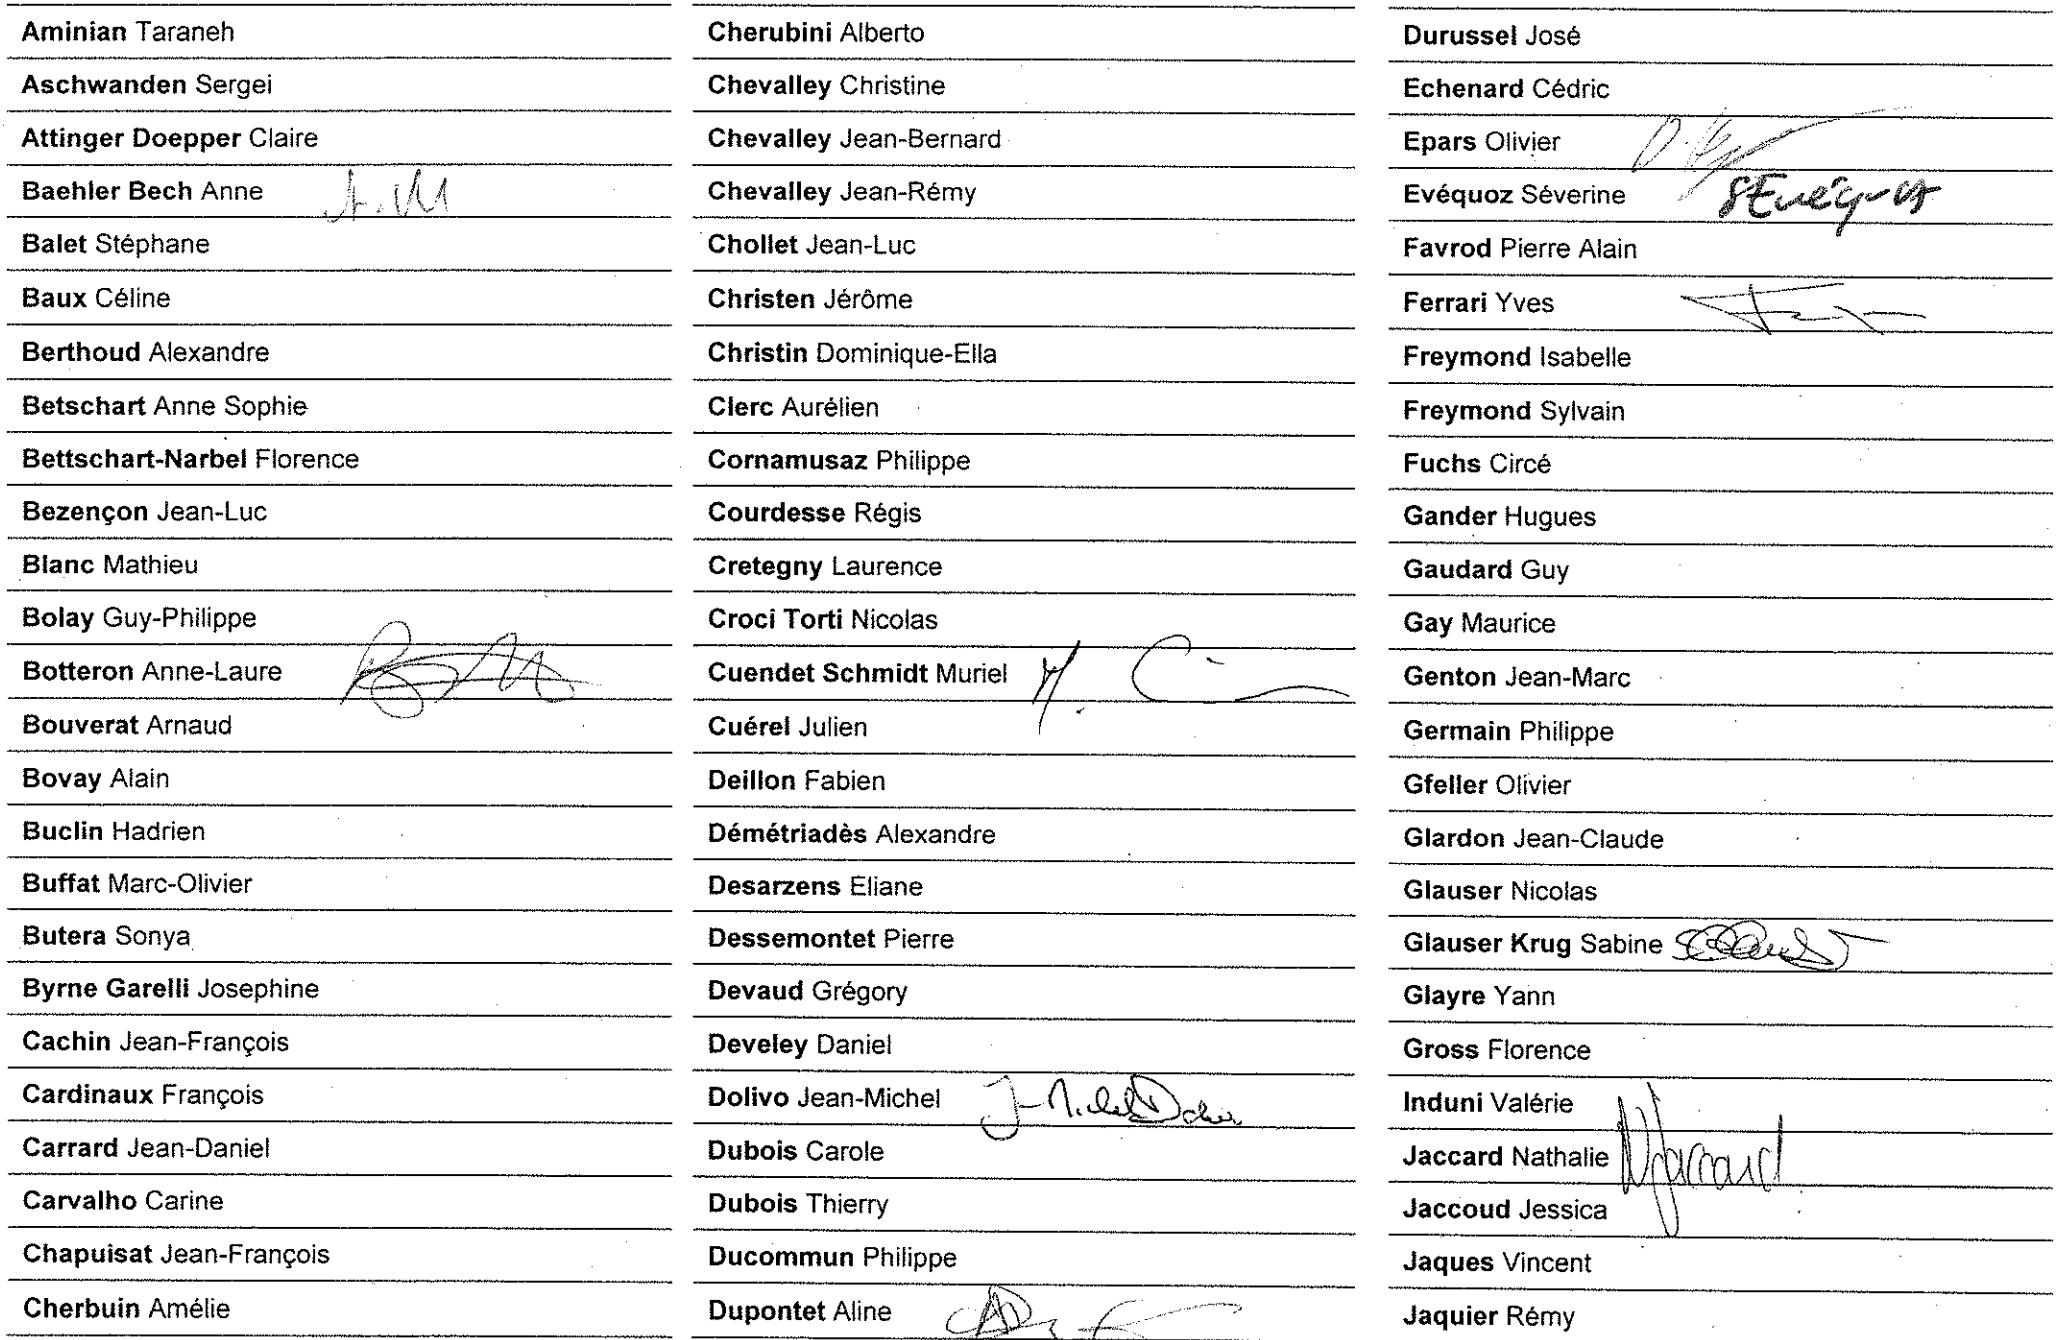 Aminian Taraneh
Aschwanden Sergei
Attinger Doepper Claire
Baehler Bech Anne
Balet Stéphane
Baux Céline
Berthoud Alexandre
Betschart Anne Sophie
Bettschart-Narbel Florence
Bezençon Jean-Luc
Blanc Mathieu
Bolay Guy-Philippe
Botteron Anne-Laure
Bouverat Arnaud
Bovay Alain
Buclin Hadrien
Buffat Marc-Olivier
Butera Sonya
Byrne Garelli Josephine
Cachin Jean-François
Cardinaux François
Carrard Jean-Daniel
Carvalho Carine
Chapuisat Jean-François
Cherbuin Amélie
Cherubini Alberto
Chevalley Christine
Chevalley Jean-Bernard
Chevalley Jean-Rémy
Chollet Jean-Luc
Christen Jérôme
Christin Dominique-Ella
Clerc Aurélien
Cornamusaz Philippe
Courdesse Régis
Cretegny Laurence
Croci Torti Nicolas
Cuendet Schmidt Muriel
Cuérel Julien
Deillon Fabien
Démétriadès Alexandre
Desarzens Eliane
Dessemontet Pierre
Devaud Grégory
Develey Daniel
Dolivo Jean-Michel
Dubois Carole
Dubois Thierry
Ducommun Philippe
Dupontet Aline
Durussel José
Echenard Cédric
Epars Olivier
Evéquoz Séverine
Favrod Pierre Alain
Ferrari Yves
Freymond Isabelle
Freymond Sylvain
Fuchs Circé
Gander Hugues
Gaudard Guy
Gay Maurice
Genton Jean-Marc
Germain Philippe
Gfeller Olivier
Glardon Jean-Claude
Glauser Nicolas
Glauser Krug Sabine
Glayre Yann
Gross Florence
Induni Valérie
Jaccard Nathalie NJaccard
Jaccoud Jessica
Jaques Vincent
Jaquier Rémy